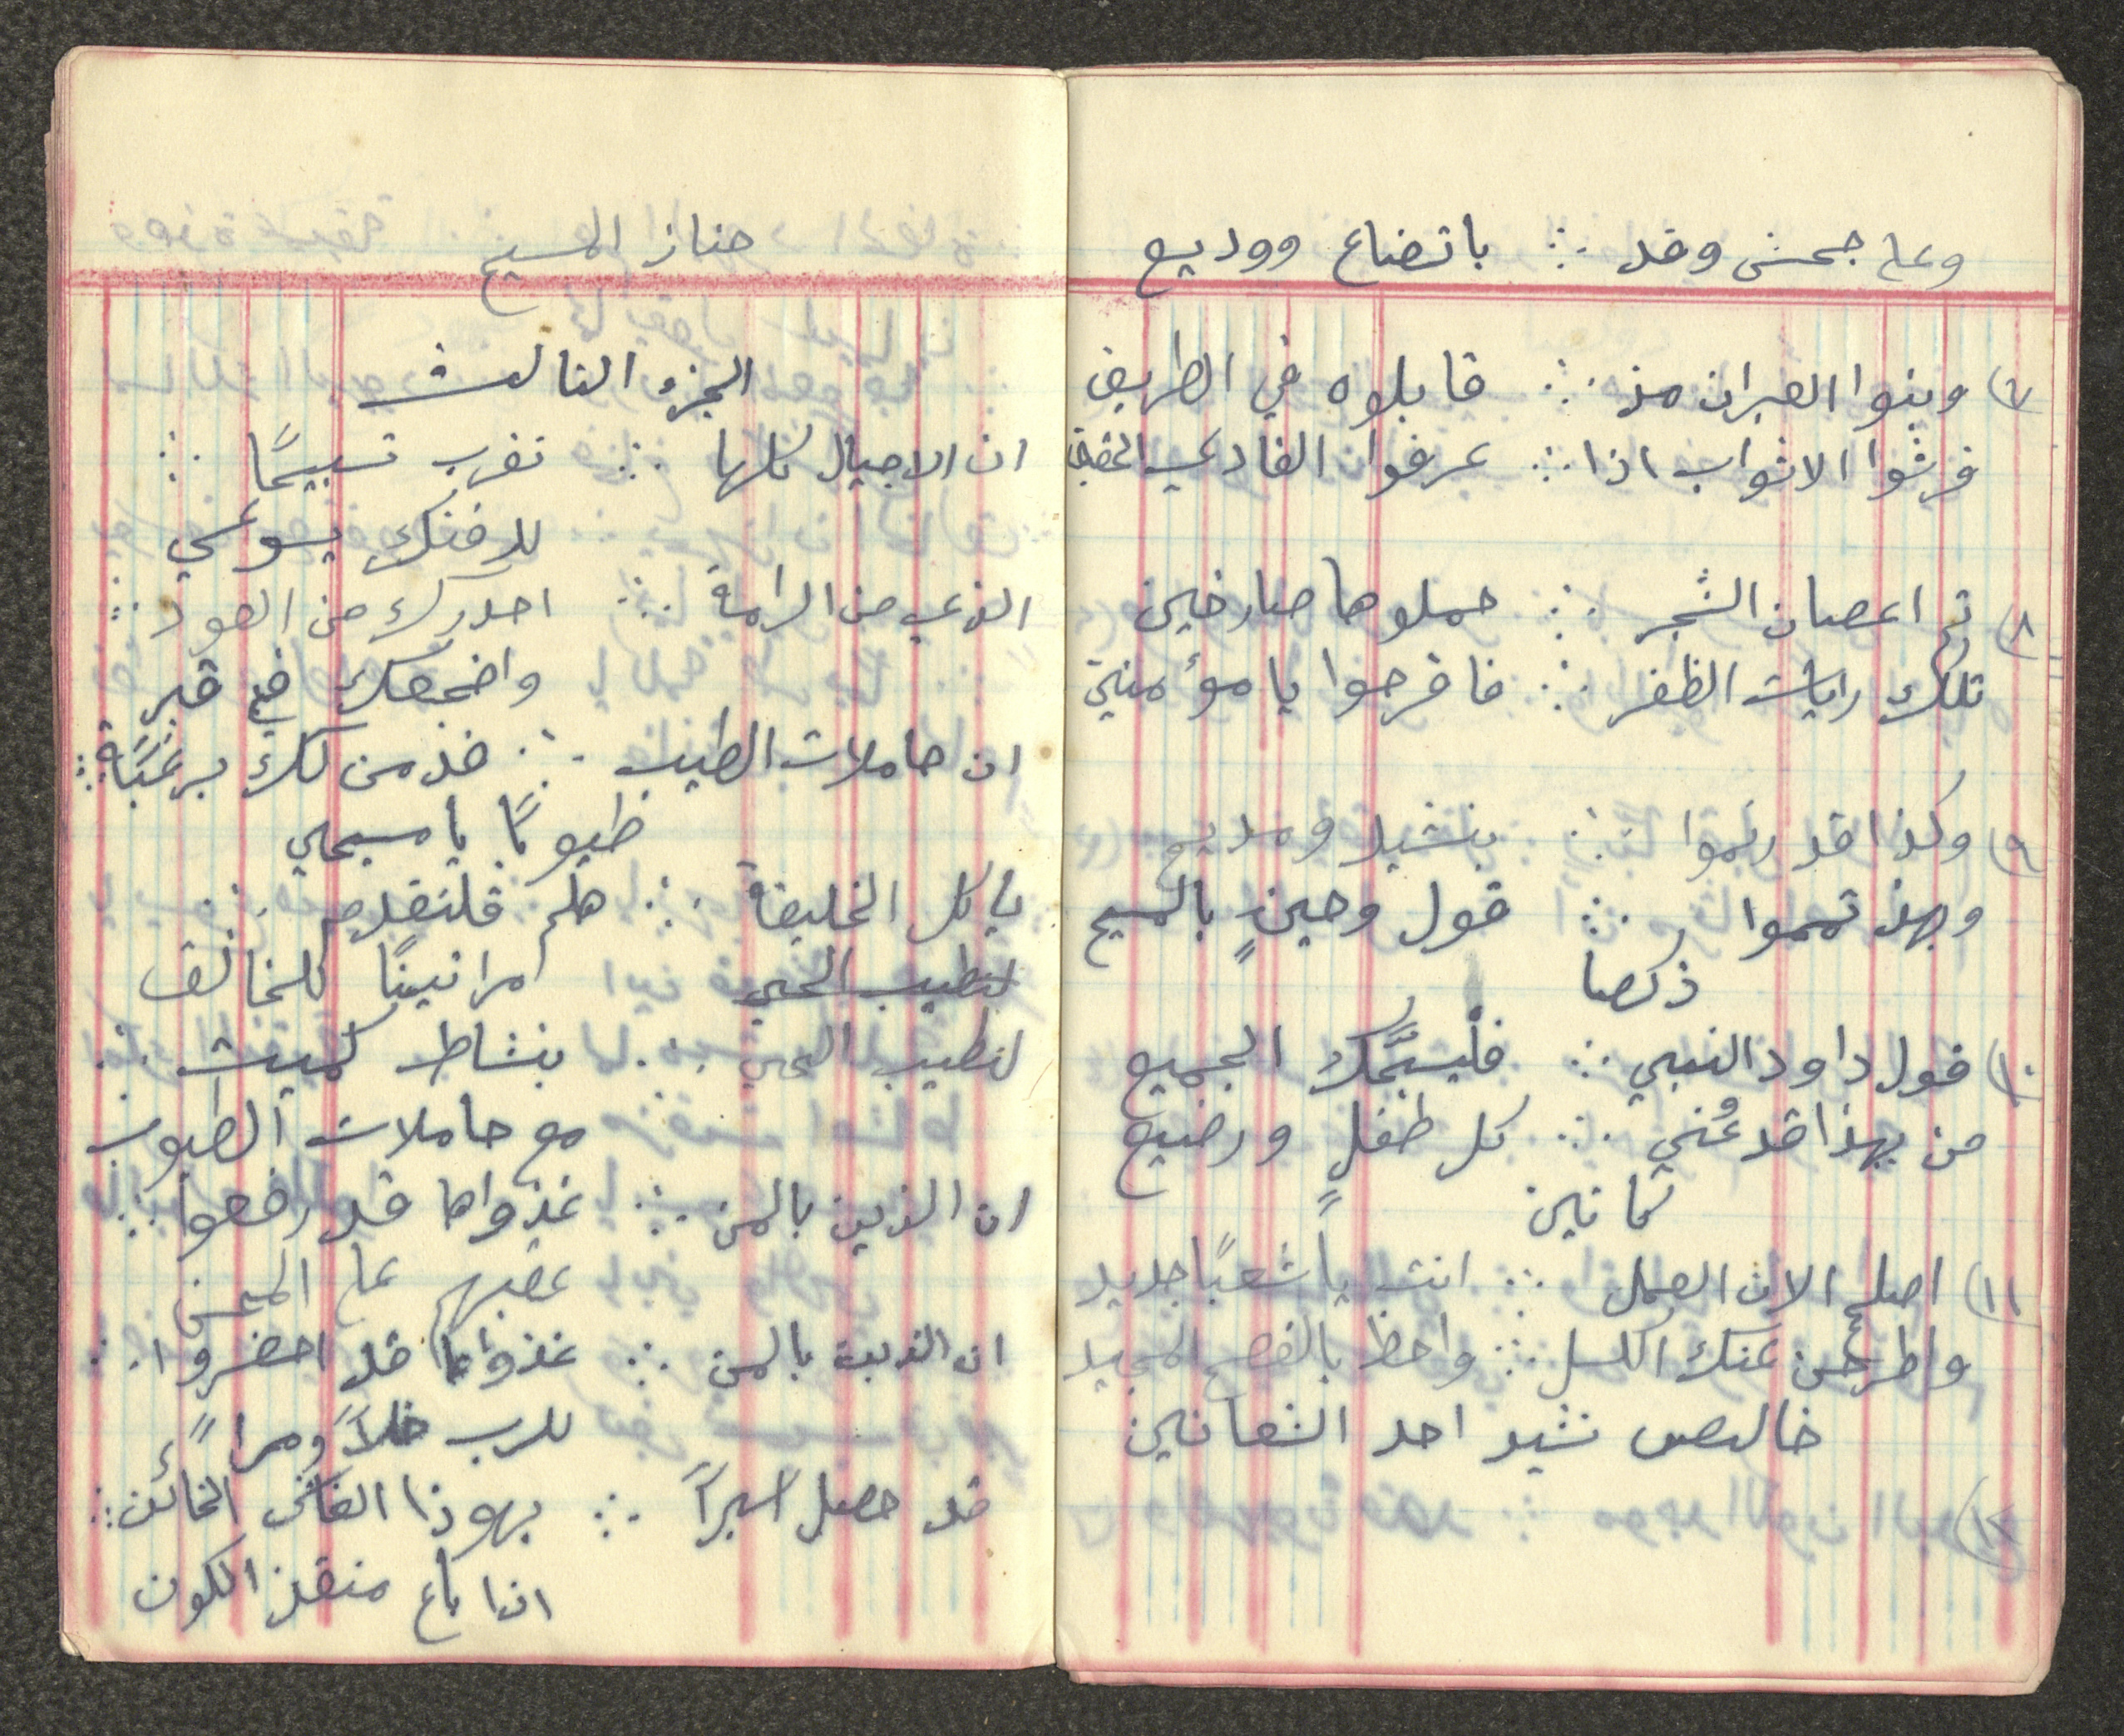 وعلى جحش وفد ∴ باتضاع ووديع
٧) وبنوا العبران مذ ∴ قابلوه في الطريق
فرشوا الاثواب اذا ∴ عرفوا الفادي الحقيق
٨) ثم اغصان الشجر ∴ حملوها صارخين
تلك رايات الظفر ∴ فافرحوا يا مؤمنين
٩) وكذا قد رنموا ∴ بنشيد ومديح
وبهذ تمموا ∴ قول وحيٍ بالمسيح
ذكصا
١٠) قول داود النبي ∴ فليسبّحك الجميع
من بهذا قد عُني ∴ كل طفلٍ ورضيع
كانين
١١) اصلح الان العمل ∴ انت يا شعبًا جديد
واطرحن عنك الكسل ∴ واحظ بالفصح المجيد
خالص نشيد احد الشعانين
١٢)
جناز المسيح
الجزء الثالث
ان الاجيال كلها ∴ تقرب تسبيحًا ∴
لدفنك يسوعي
الذي من الرامة ∴ احدرك من العود ∴
واضجعك في قبر
ان حاملات الطيب ∴ قدمن لك برغبَةً ∴
طيوبًا يا مسيحي
يا كل الخليقة ∴ هلم فلنقدم ∴
لنطيب الحي امراثينًا للخالق
لنطيب الحي ∴ بنشاط كميت ∴
مع حاملات الطيوب
ان الذين بالمن ∴ غذواها قد رفعوا ∴
عقبهم على المحسن
ان الذين بالمن ∴ غذوا قد احضروا ∴
للرب خلاً ومرارًا
قد حصل اسيراً ∴ يهوذا الغاش الخائن ∴
اذا باع منقذ الكون